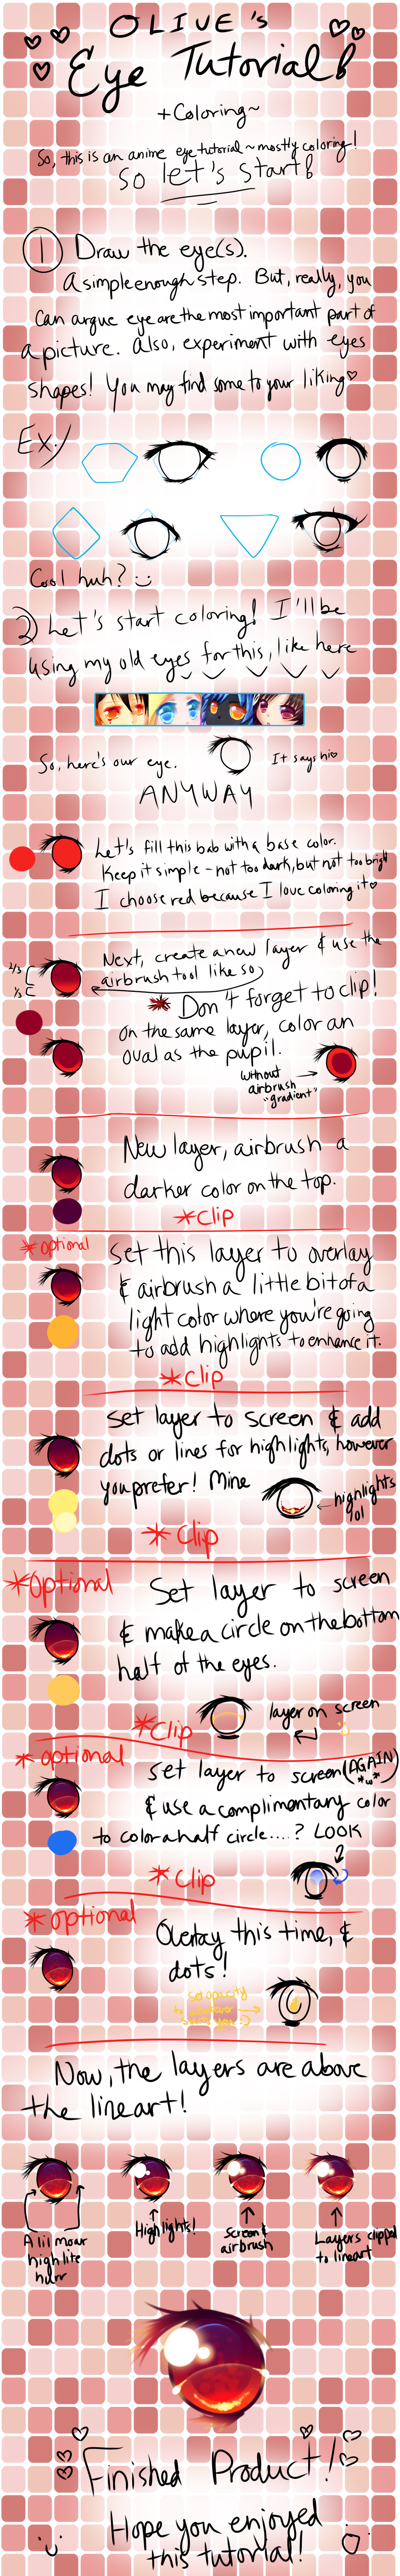 OLIVE's
Eye Tutorial!
+Coloring~
So, this is an anime eye tutorial ~ mostly coloring!
So let's start!
1 Draw the eye(s).
A simple enough step. But, really, you
can argue eye are the most important part of
a picture. Also, experiment with eyes
shapes! You may find some to your liking♡
Ex:/
Cool huh? :)
2) Let's start coloring! I'll be
using my old eyes for this, like here
So, here's our eye.
It says hi♡
ANYWAY
Let's fill this bab with a base color.
Keep it simple - not too dark, but not too bright
I choose red because I love coloring it♡
2/3
1/3
Next, create a new layer & use the
airbrush tool like so
* Don't forget to clip!
On the same layer, color an
oval as the pupil.
without
airbrush
"gradient"
New layer, airbrush a
darker color on the top.
*Clip
*optional
Set this layer to overlay
& airbrush a little bit of a
light color where you're going
to add highlights to enhance it.
*Clip
Set layer to screen & add
dots or lines for highlights, however
you prefer! Mine
highlights
lol
* Clip
*Optional
Set layer to screen
& make a circle on the bottom
half of the eyes.
*Clip
layer on screen
* optional
Set layer to screen (AGAIN)
*w*
& use a complimentary color
to color a half circle....? LOOK
* Clip
* optional
Overlay this time, &
dots!
Set opacity
to whatever
suits you :)
Now, the layers are above
the lineart!
A lil moar
highlite
hurr
Highlights!
Screen &
airbrush
Layers clipped
to lineart
Finished Product!
Hope you enjoyed
this tutorial!